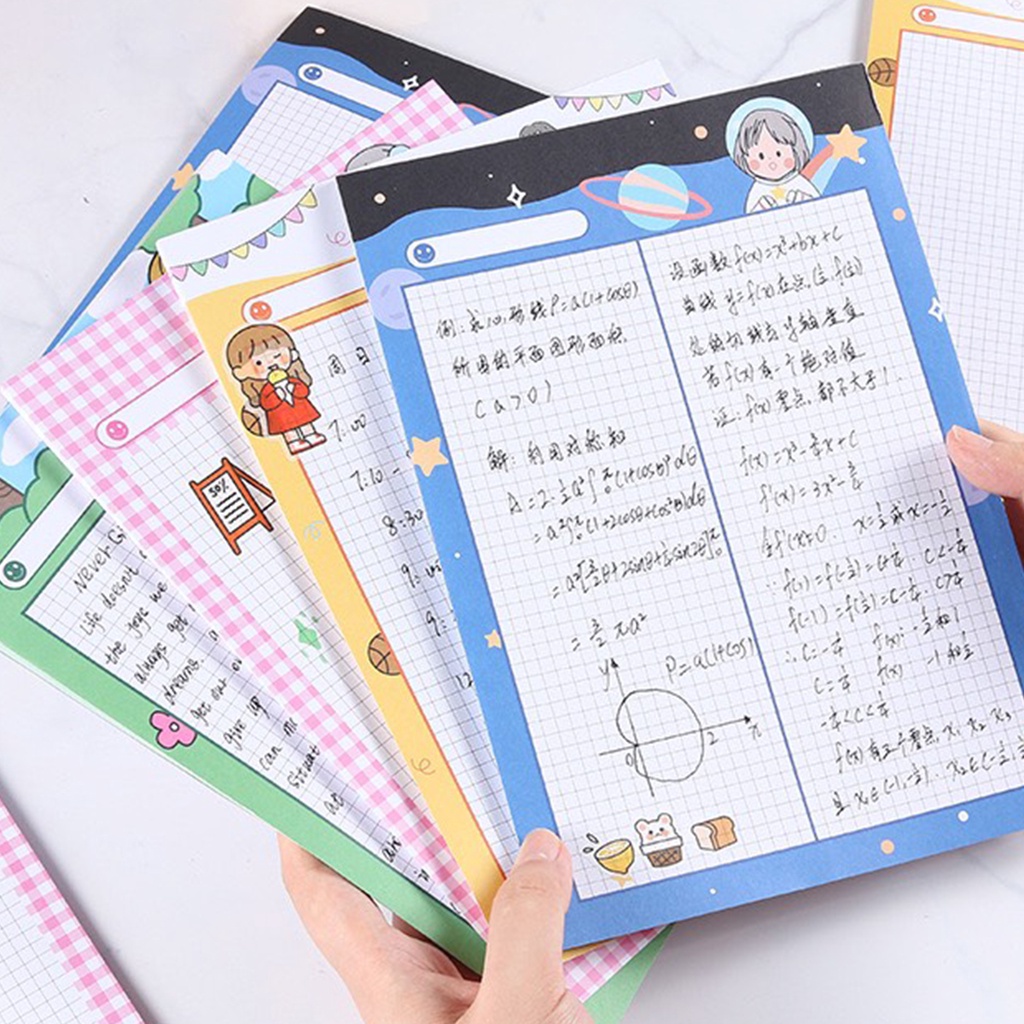 例：求心形线ρ=a(1+cosθ)
所围的平面图形面积
(a>0)
解：利用对称知
A=2·½a²∫₀^π(1+cosθ)²dθ
=a²∫₀^π(1+2cosθ+cos²θ)dθ
=a²[3/2θ+2sinθ+¼sin2θ]₀^π
=3/2πa²
y
ρ=a(1+cos)
0
2
x
设函数f(x)=x³+bx+c
曲线y=f(x)在点(½,f(½))
处的切线与y轴垂直
若f(x)有一个绝对值
证：f(x)零点，都不大于1.
f(x)=x³-¾x+c
f'(x)=3x²-¾
令f'(x)=0. x=½或x=-½
∵f(1)=f(-½)=c+¼. c<-¼
f(-1)=f(½)=c-¼. c>¼
∴c=-¼ f(x) -½和1
c=¼ f(x) -1和½
-¼<c<¼
f(x)有三个零点，x₁ x₂ x₃
且x₁∈(-1,-½). x₂∈(-½,½
周日
7:00
7:10 -
8:30
9:
9:
12
50%
Never G
Life doesnt
the joys we
always get
dreams.
get our
give up
can
situat
are